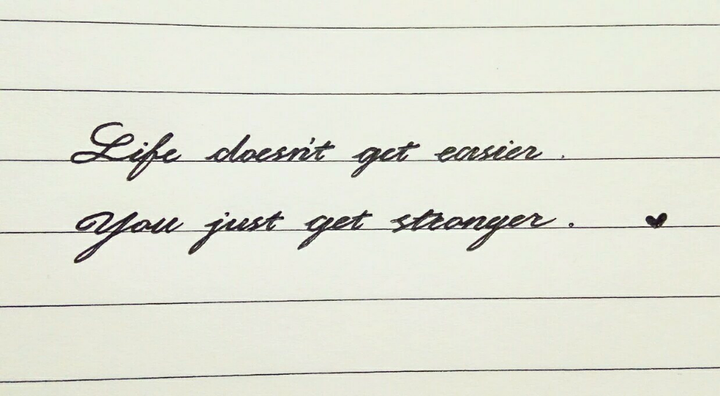 Life doesn't get easier.
You just get stronger. ♥